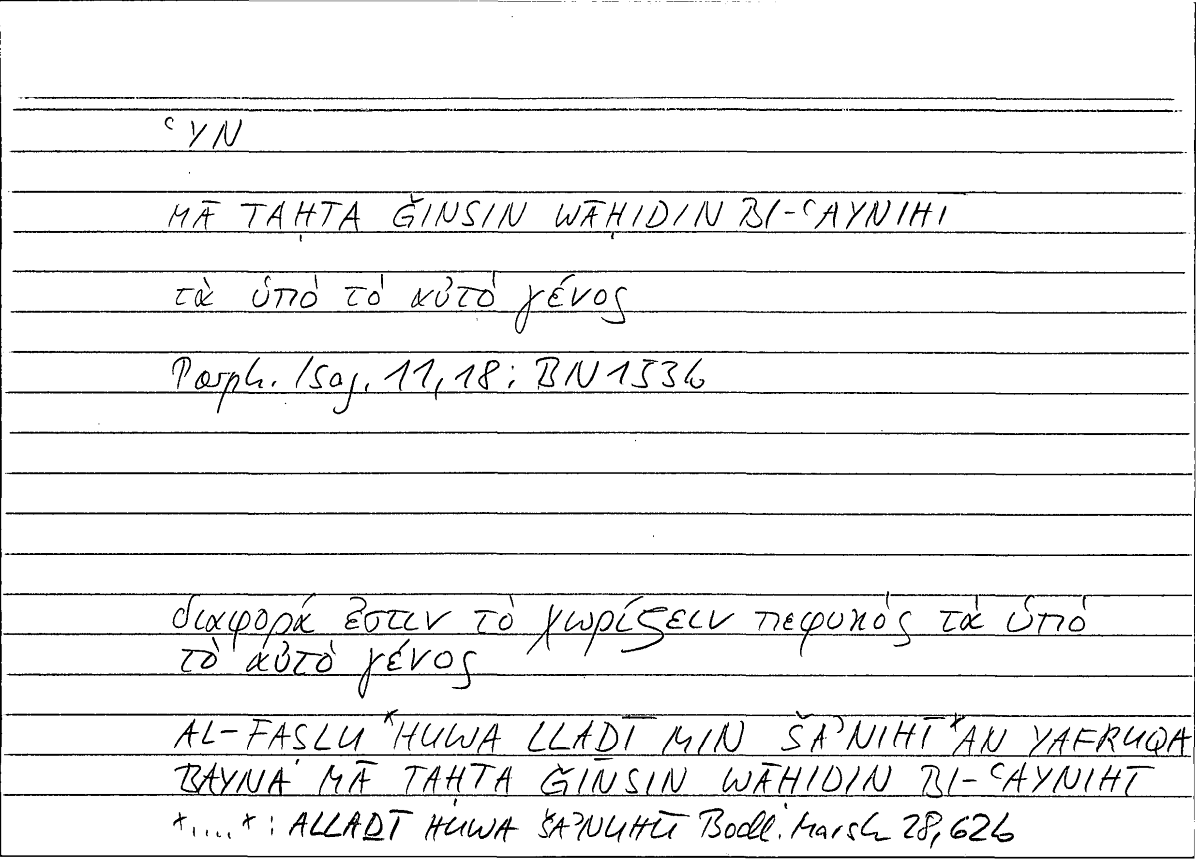 ʿYN
MĀ TAḤTA ǦINSIN WĀḤIDIN BI-ʿAYNIHĪ
τὰ ὑπὸ τὸ αὐτὸ γένος
Porph. Isag. 11,18: BN 153b
διαφορά ἐστιν τὸ χωρίζειν πεφυκὸς τὰ ὑπὸ
τὸ αὐτὸ γένος
AL-FAṢLU *HUWA LLAḎĪ MIN ŠAʾNIHĪ* AN YAFRUQA
BAYNA MĀ TAḤTA ǦINSIN WĀḤIDIN BI-ʿAYNIHĪ
*....*: ALLAḎĪ HUWA ŠAʾNUHŪ Bodl. Marsh 28,62b